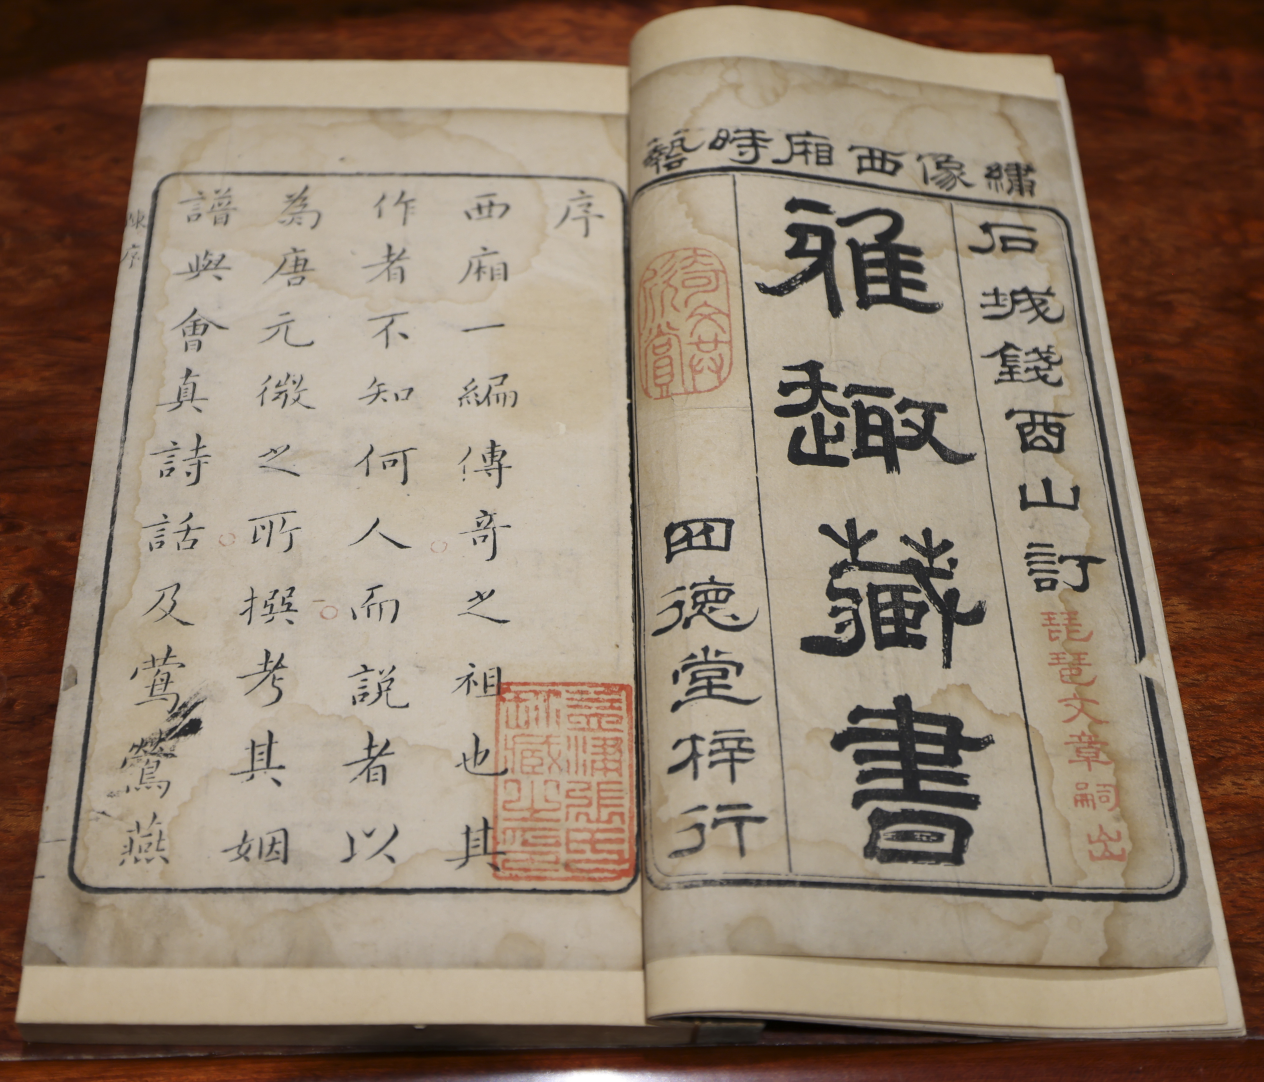 繡像西廂時藝
石城錢酉山訂
琵琶文章嗣出
雅趣藏書
四德堂梓行
奇文共欣賞
序
西廂一編傳奇之祖也其
作者不知何人而說者以
為唐元微之所撰考其姻
譜與會真詩話及鶯鶯燕
陳序